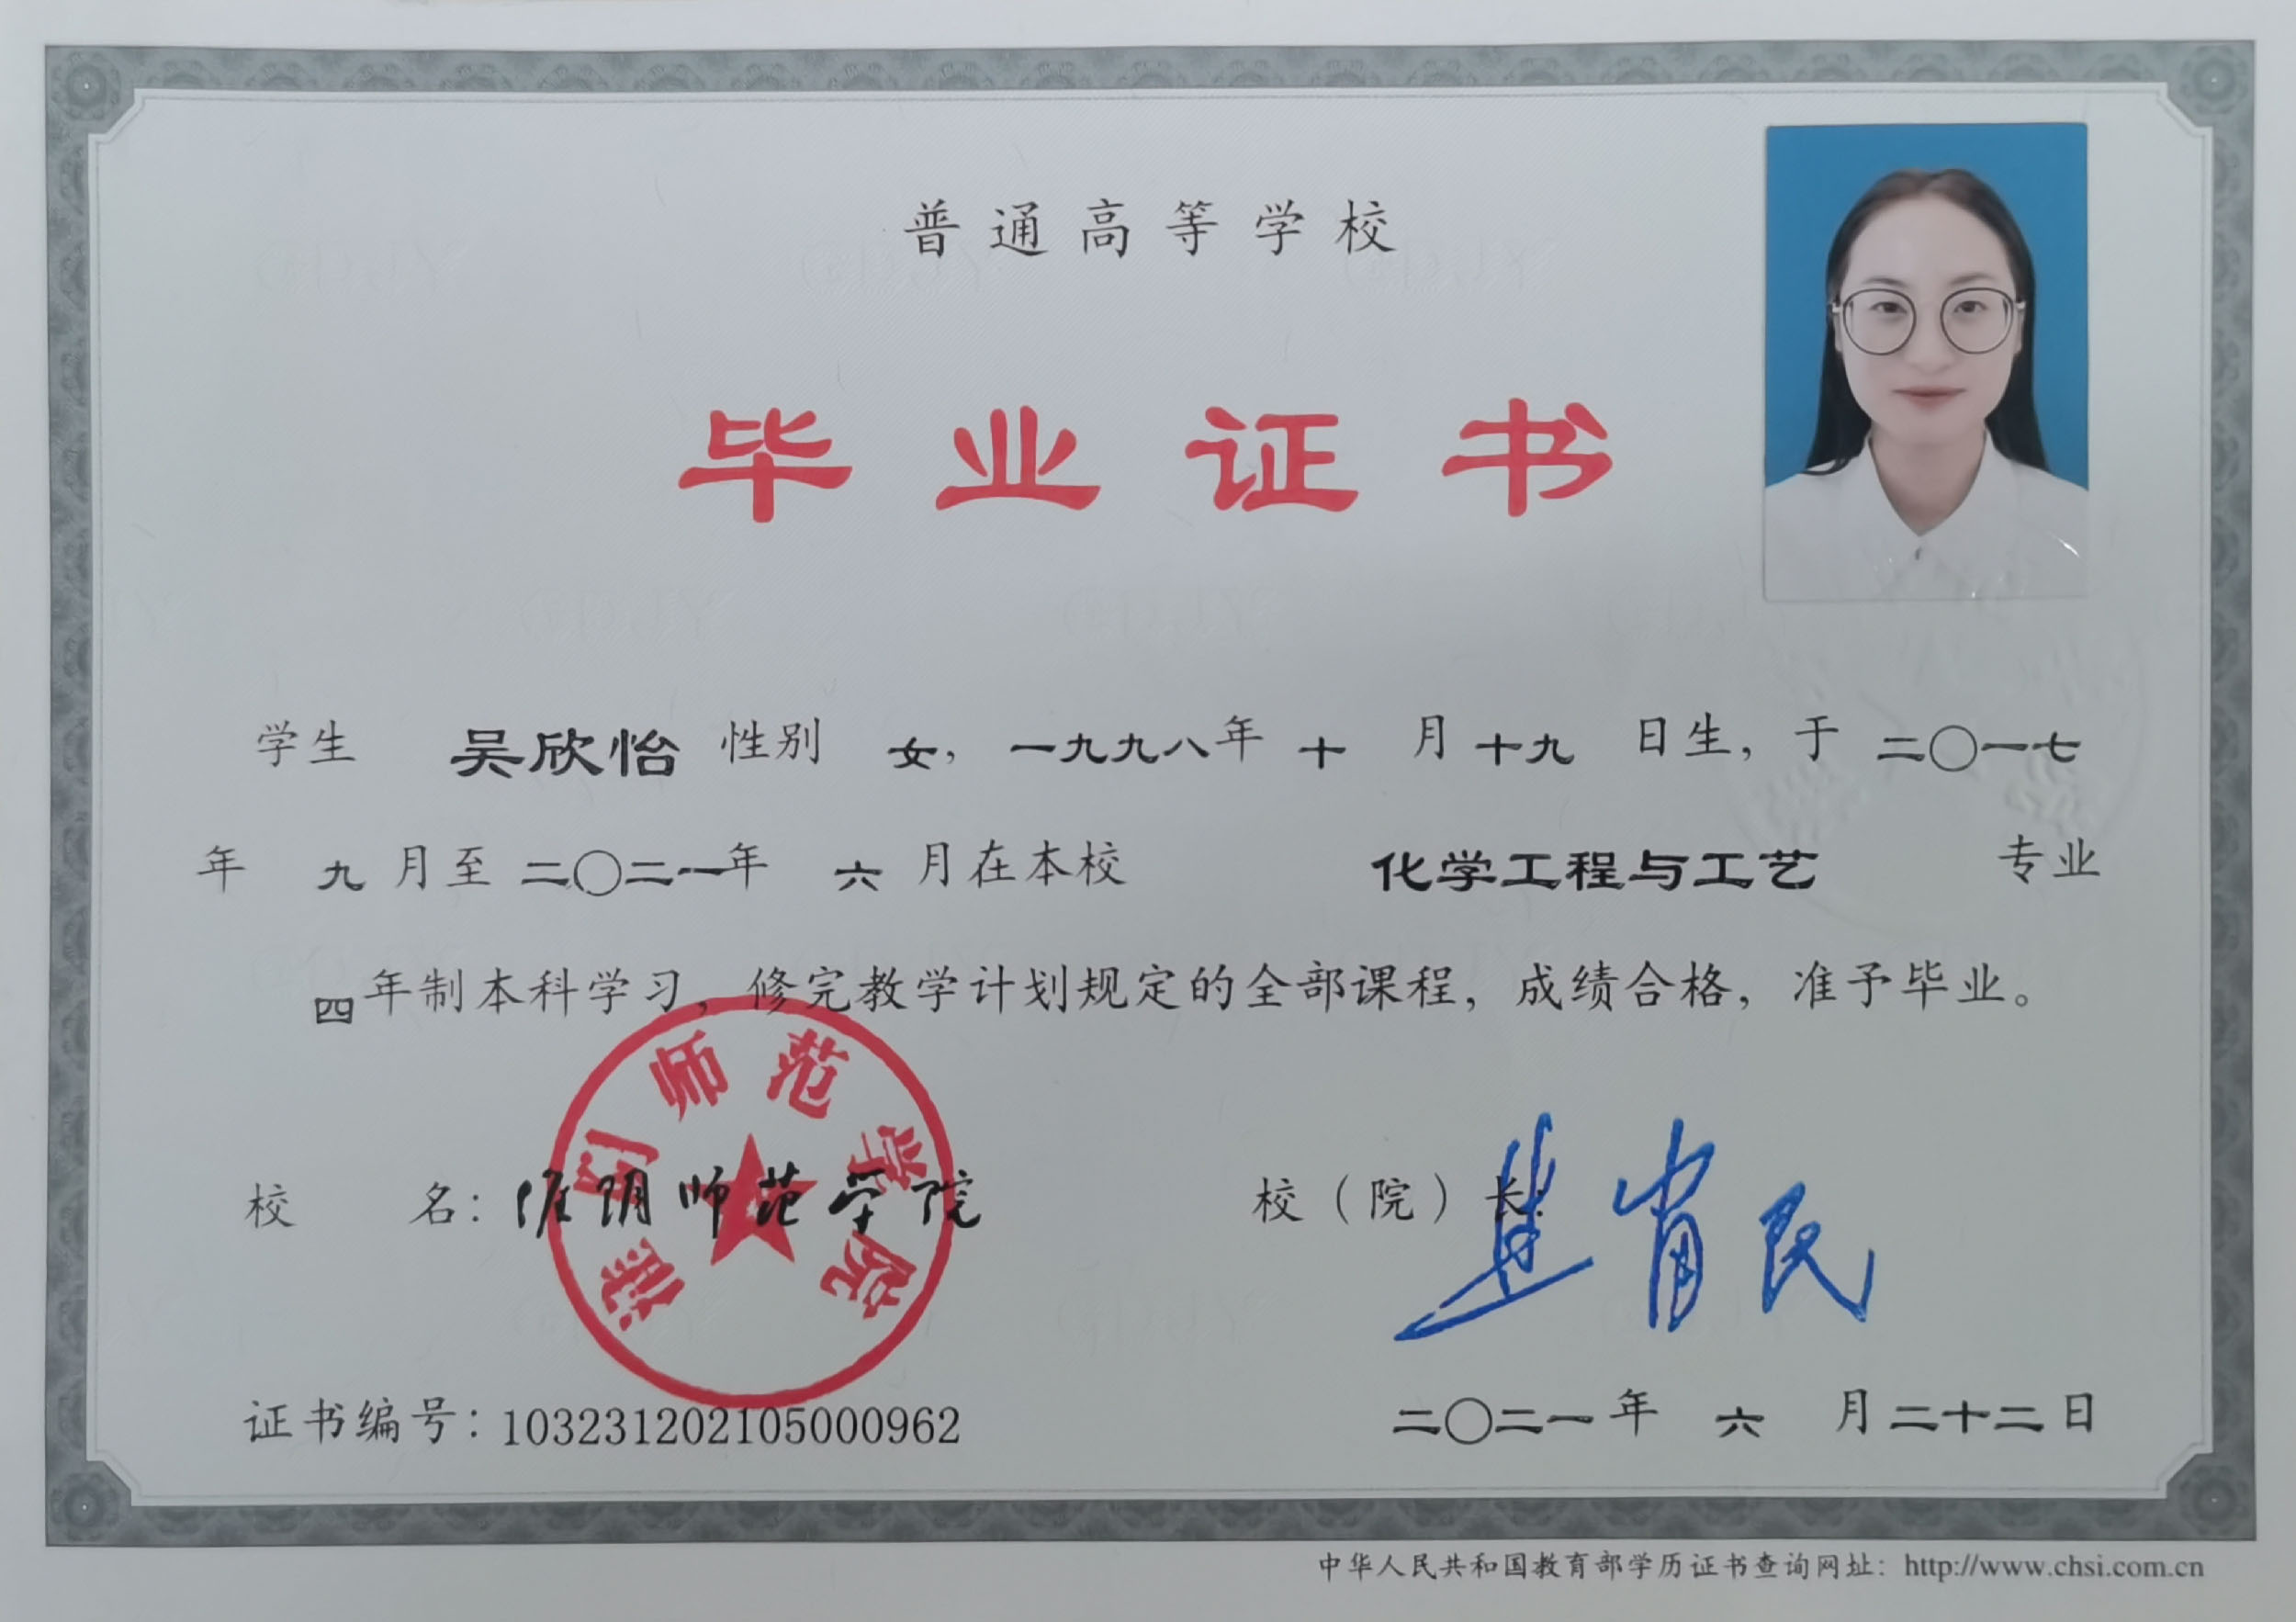 普通高等学校
毕业证书
学生 吴欣怡 性别 女，一九九八年 十 月十九 日生，于 二〇一七
年 九 月至 二〇二一年 六 月在本校 化学工程与工艺 专业
四年制本科学习，修完教学计划规定的全部课程，成绩合格，准予毕业。
淮阴师范学院
校 名：淮阴师范学院 校（院）长：
证书编号：103231202105000962 二〇二一年 六 月二十二日
中华人民共和国教育部学历证书查询网址：http://www.chsi.com.cn